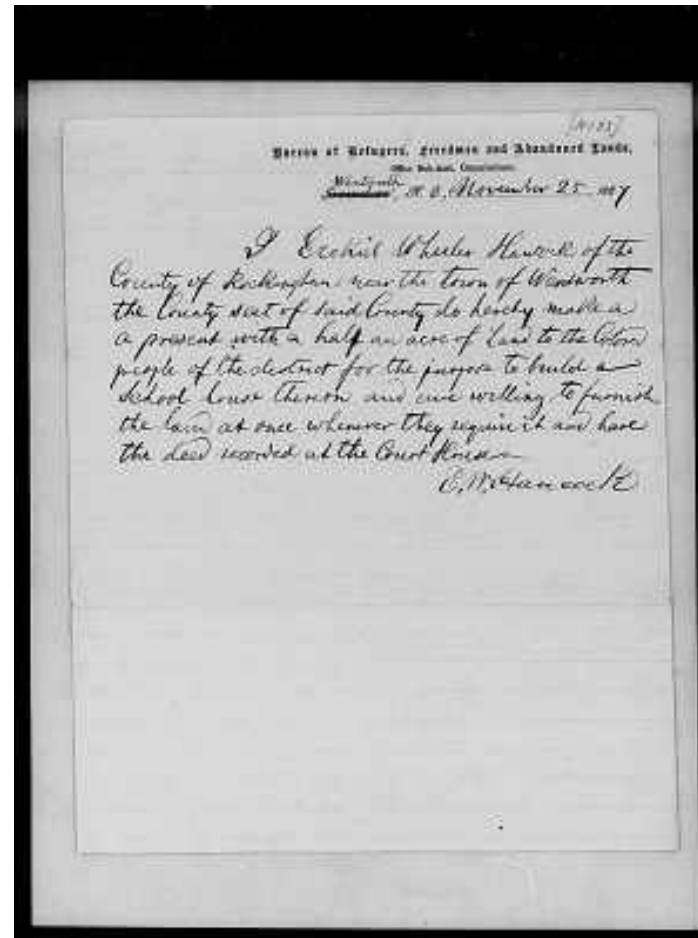 [H135]
Bureau of Refugees, Freedmen and Abandoned Lands,
Office Sub-Asst. Commissioner,
Wentworth, N. C. November 25 1867
I Ezekiel Wheeler Hancock of the
County of Rockingham near the town of Wentworth
the County seat of said County do hereby make a
a present with a half an acre of Land to the Colored
people of the district for the purpose to build a
School house thereon and am willing to furnish
the land at once whenever they require it and have
the deed recorded at the Court House
E. W. Hancock